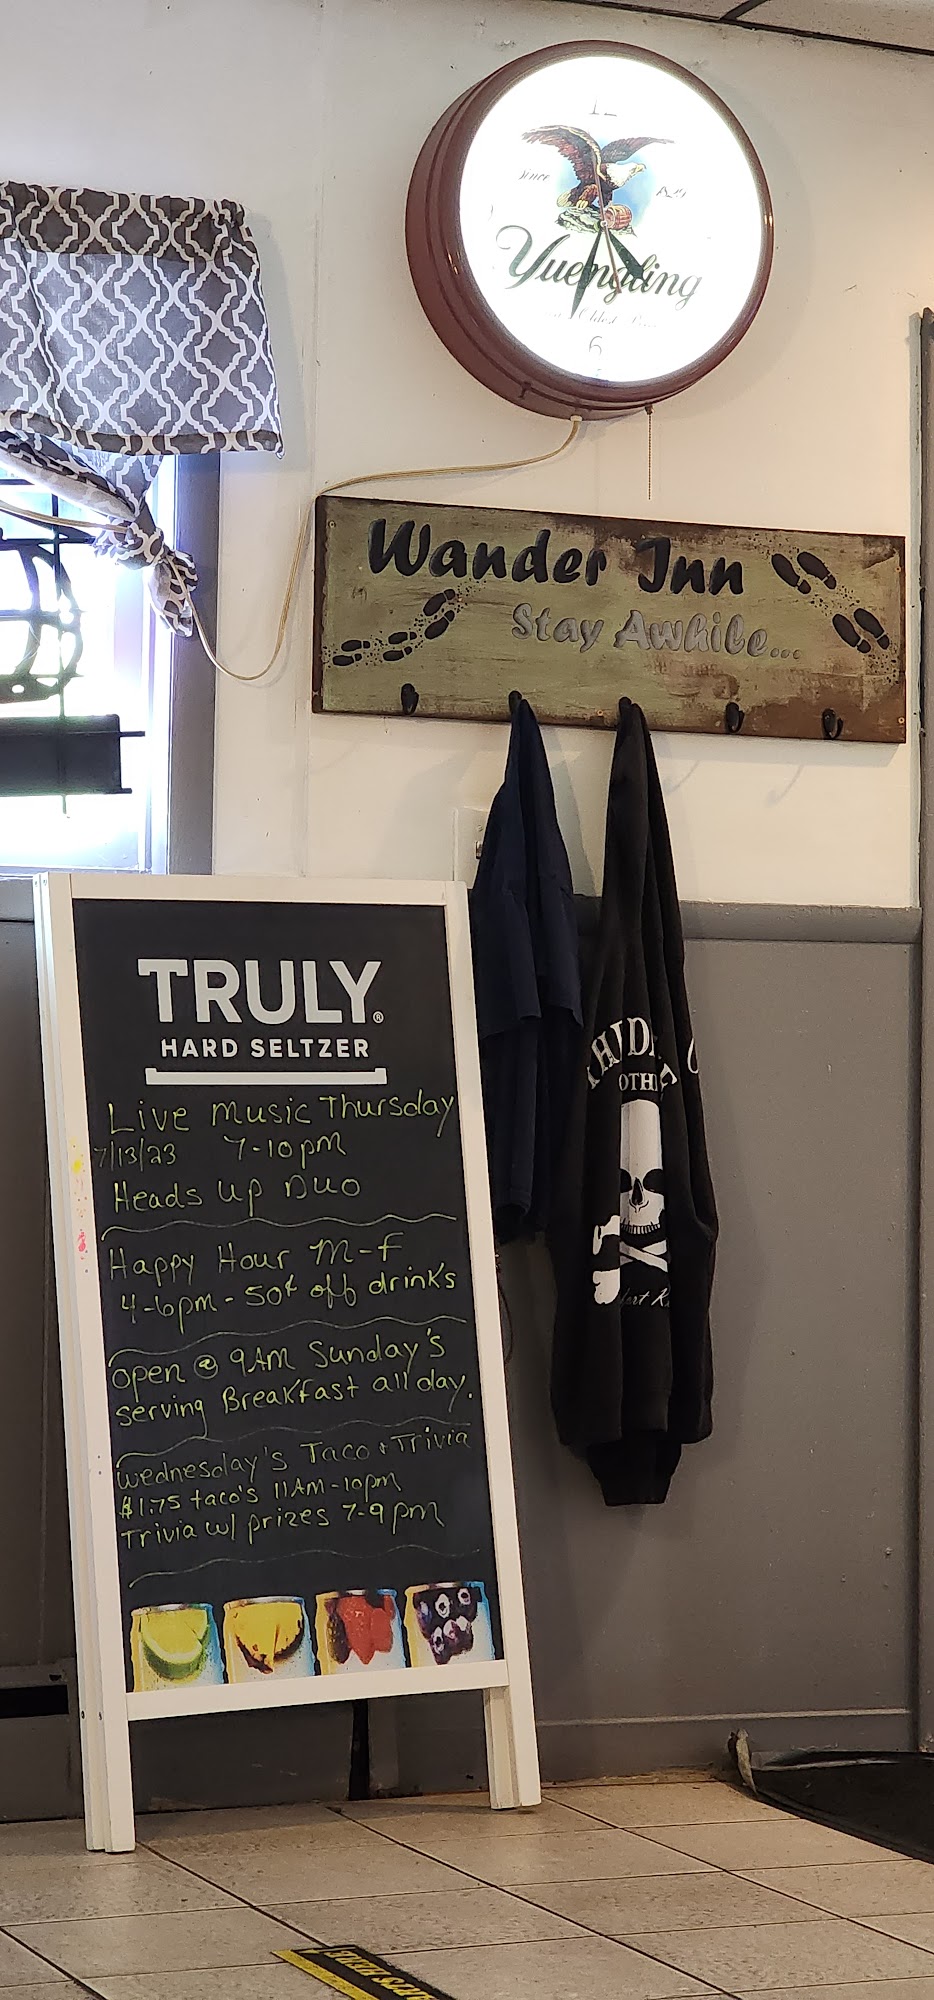 12
Since
Yuengling
Oldest
6
Wander Inn
Stay Awhile...
TRULY®
HARD SELTZER
Live Music Thursday
7/13/23 7-10pm
Heads Up Duo
Happy Hour M-F
4-6pm - 50¢ off drinks
Open @ 9AM Sunday's
serving Breakfast all day.
Wednesday's Taco + Trivia
$1.75 taco's 11AM-10pm
Trivia w/ prizes 7-9pm